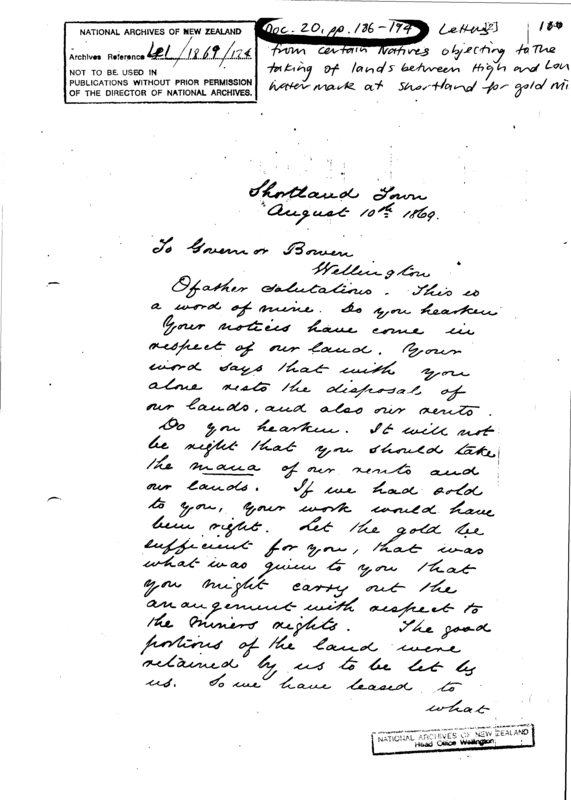 NATIONAL ARCHIVES OF NEW ZEALAND
Archives Reference Le1/1869/124
NOT TO BE USED IN
PUBLICATIONS WITHOUT PRIOR PERMISSION
OF THE DIRECTOR OF NATIONAL ARCHIVES.
Doc. 20, pp. 186-194 Letter[s]
from certain Natives objecting to the
taking of lands between High and Low
water mark at Shortland for gold mi
Shortland Town
August 10th 1869.
To Governor Bowen
Wellington
O father salutations. This is
a word of mine. Do you hearken
Your notices have come in
respect of our land. Your
word says that with you
alone rests the disposal of
our lands, and also our rents.
Do you hearken. It will not
be right that you should take
the mana of our rents and
our lands. If we had sold
to you, your work would have
been right. Let the gold be
sufficient for you, that was
what was given to you that
you might carry out the
arrangement with respect to
the Miners rights. The good
portions of the land were
retained by us to be let by
us. So we have leased to
what
NATIONAL ARCHIVES OF NEW ZEALAND
Head Office Wellington